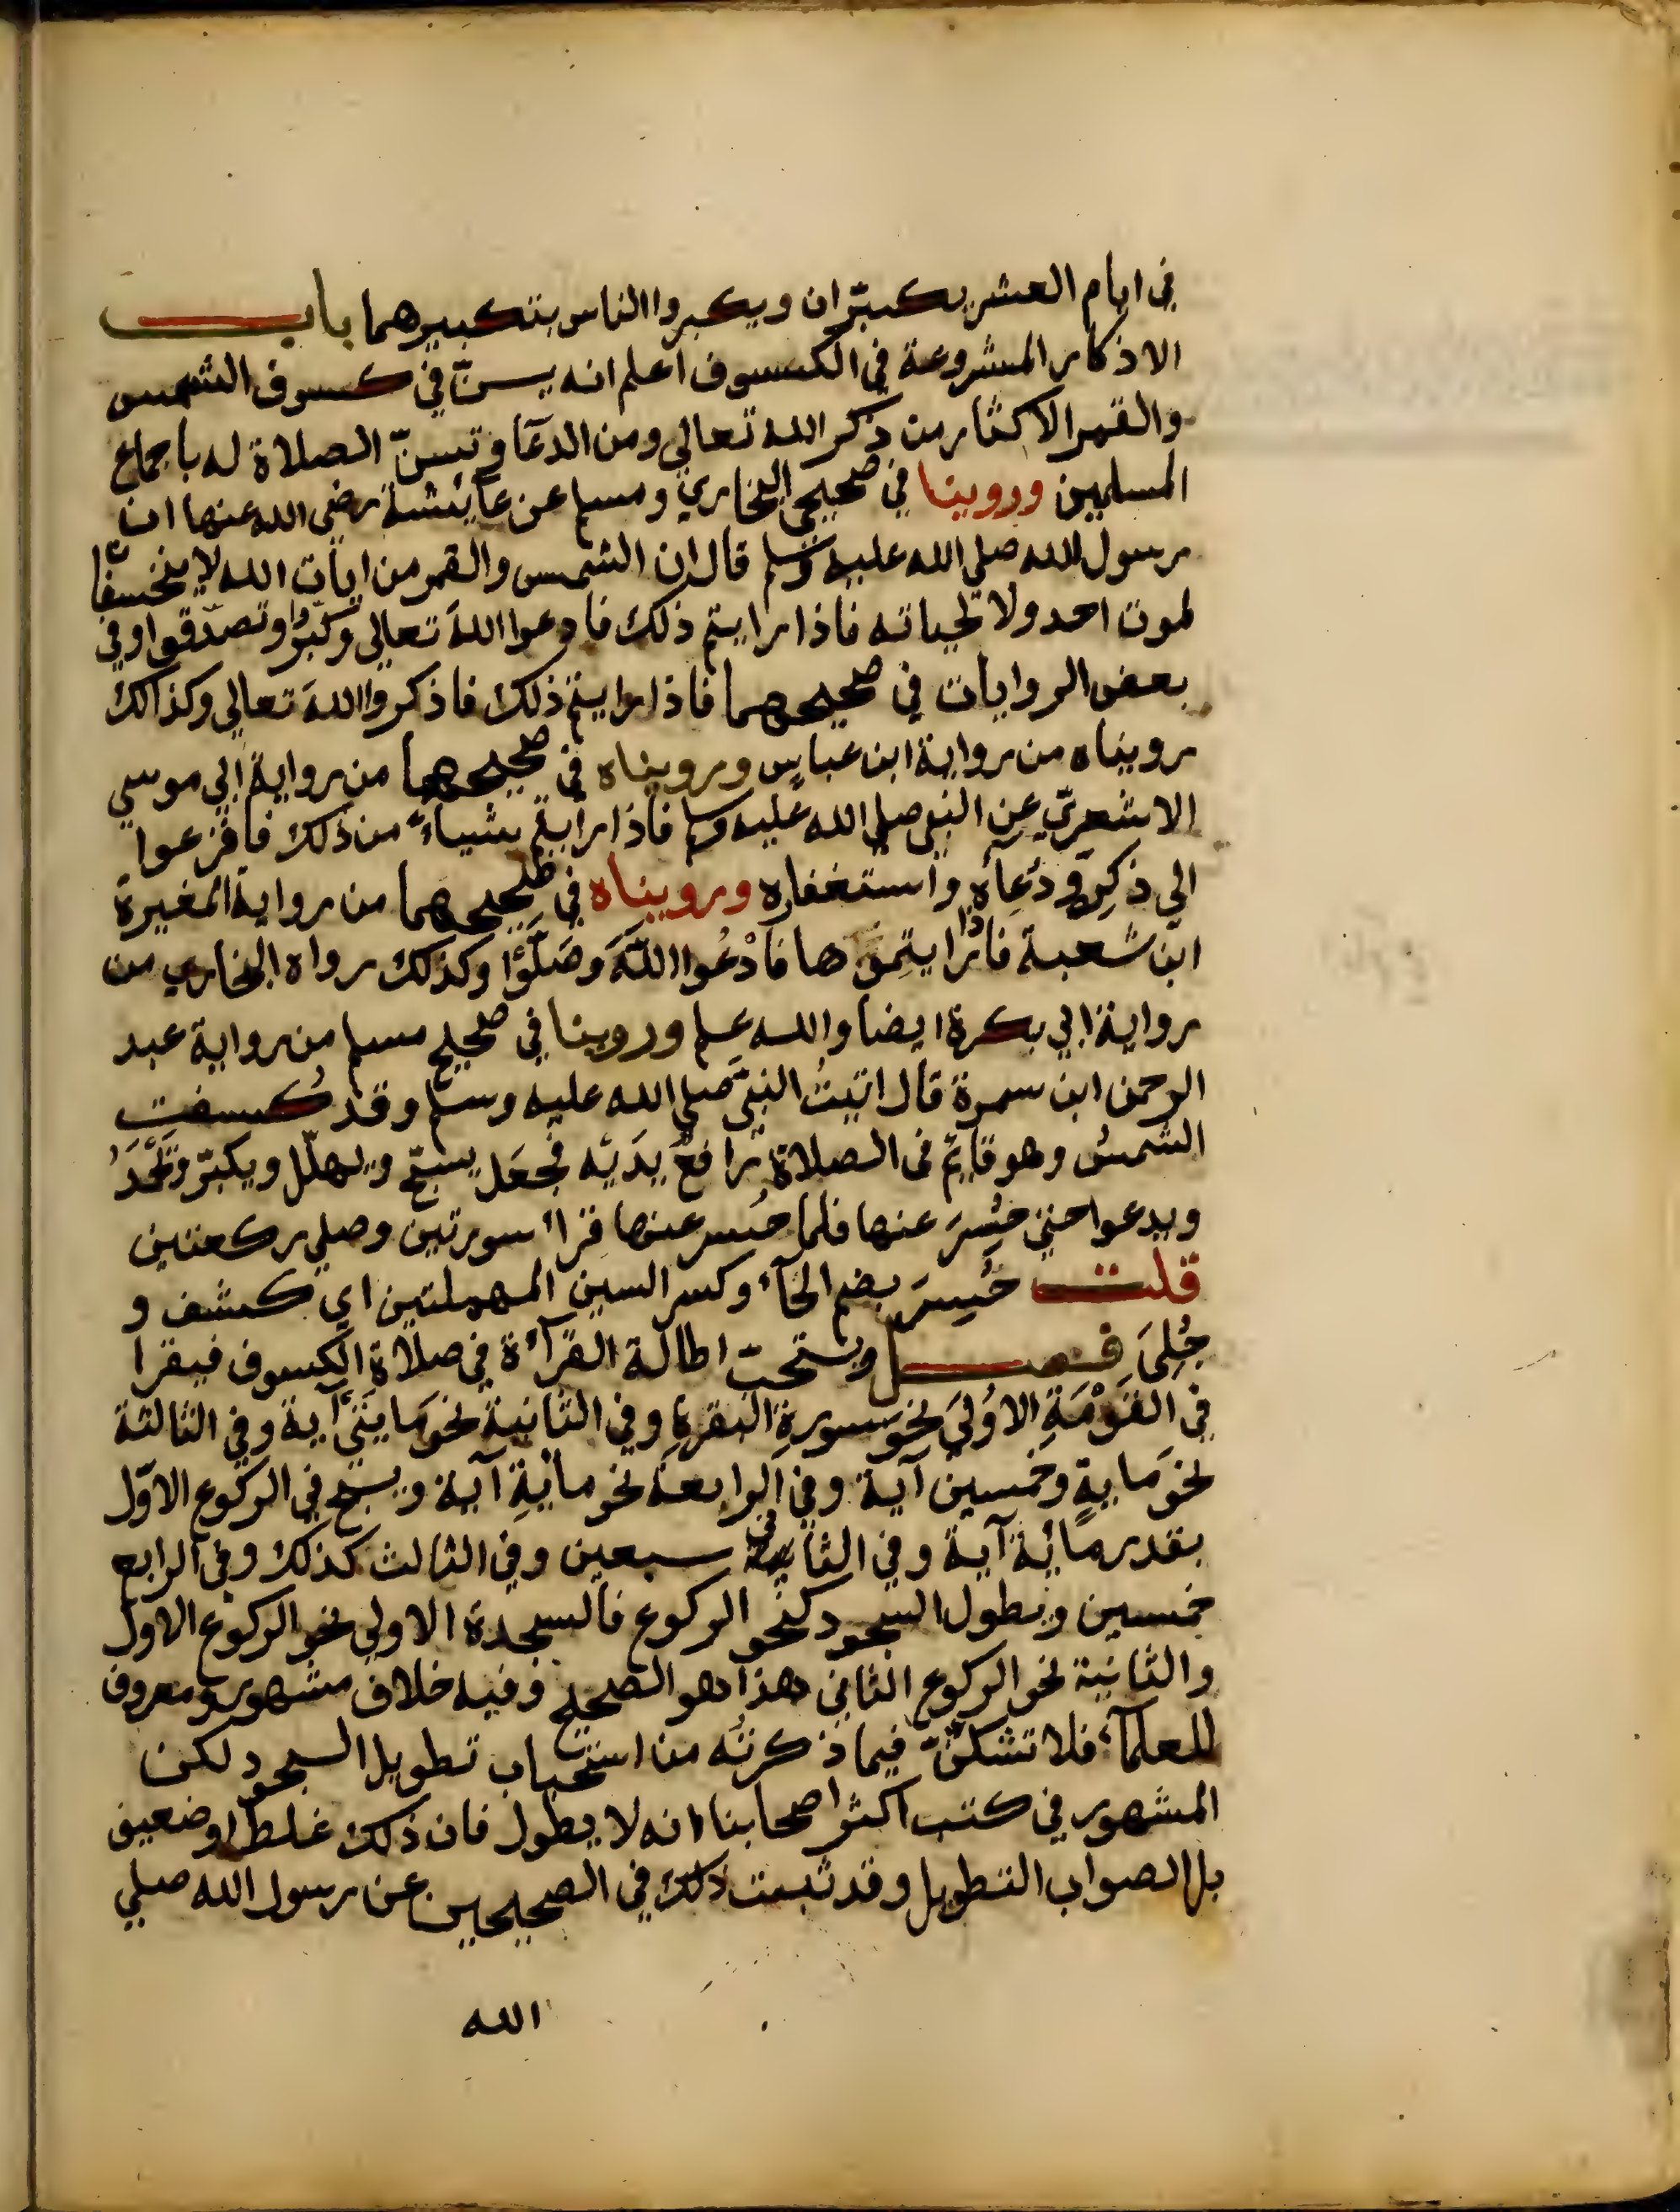 في ايام العشر يكبّران ويكبروا الناس بتكبيرهما باب
الاذكار المشروعة في الكسوف اعلم انه يسنّ في كسوف الشمس
والقمر الاكثار من ذكر الله تعالي ومن الدعآ وتسنّ الصلاة له باجماع
المسلمين وروينا في صحيحي البخاري ومسلم عن عآيشة رضي الله عنها ان
رسول الله صلي الله عليه وسلم قال ان الشمس والقمر من ايات الله لا يخسفا
لموت احد ولا لحياته فاذا رايتم ذلك فادعوا اللهَ تعالي وكبّروا وتصدّقوا وفي
بعض الروايات في صحيحهما فاذا رايتم ذلك فاذكروا اللهَ تعالي وكذالك
رويناه من رواية ابن عباس ورويناه في صحيحهما من رواية ابي موسي
الاشعريّ عن النبي صلي الله عليه وسلم فاذا رايتم شيأً من ذلك فافزعوا
الي ذكرِه ودُعآءِه واستغفاره ورويناه في صحيحهما من رواية المغيرة
ابن شعبة فاذا رايتموها فادْعُوا اللهَ وصَلُّوْا وكذلك رواه البخاري من
رواية ابي بكرة ايضا والله علم وروينا في صحيح مسلم من رواية عبد
الرحمن ابن سمرة قال اتيتُ النبيَّ صلي الله عليه وسلم وقد كُسفت
الشمسُ وهو قايم في الصلاة رافعٌ يَدَيْه فجعَل يسبّح ويهلّل ويكبّر ويَحْمَدُ
ويدعوا حتي حُسِرَ عنها فلما حُسر عنها قرأ سورتين وصلي ركعتين
قلت حُسِرَ بضم الحآء وكسر السين المهملتين اي كشف و
جُلِيَ فصل ويستحبّ اطالة القرآءة في صلاة الكسوف فيقرا
في القَوْمَةِ الاوُليَ نحوَ سورةِ البقرةِ وفي الثانية نحوَ مايتَيْ آية وفي الثالثة
نحوَ مايةٍ وخمسين آية وفي الرابعة نحو مائةِ آية ويسبح في الركوع الاوّل
بقدر مائة آية وفي الثاني سبعين وفي الثالث كذلك وفي الرابع
خمسين ويطول السجود كنحو الركوع فالسجدة الاولي نحو الركوع الاول
والثانية نحو الركوع الثاني هذا هو الصحيح وفيه خلاف مشهور ومعروف
للعلمآء فلا تشكنّ فيما ذكرتُه من استحباب تطويل السجود لكن
المشهور في كتب اكثر اصحابنا انه لا يطول فان ذلك غلط او ضعيف
بل الصواب التطويل وقد ثبت ذلك في الصحيحين عن رسول الله صلي
الله